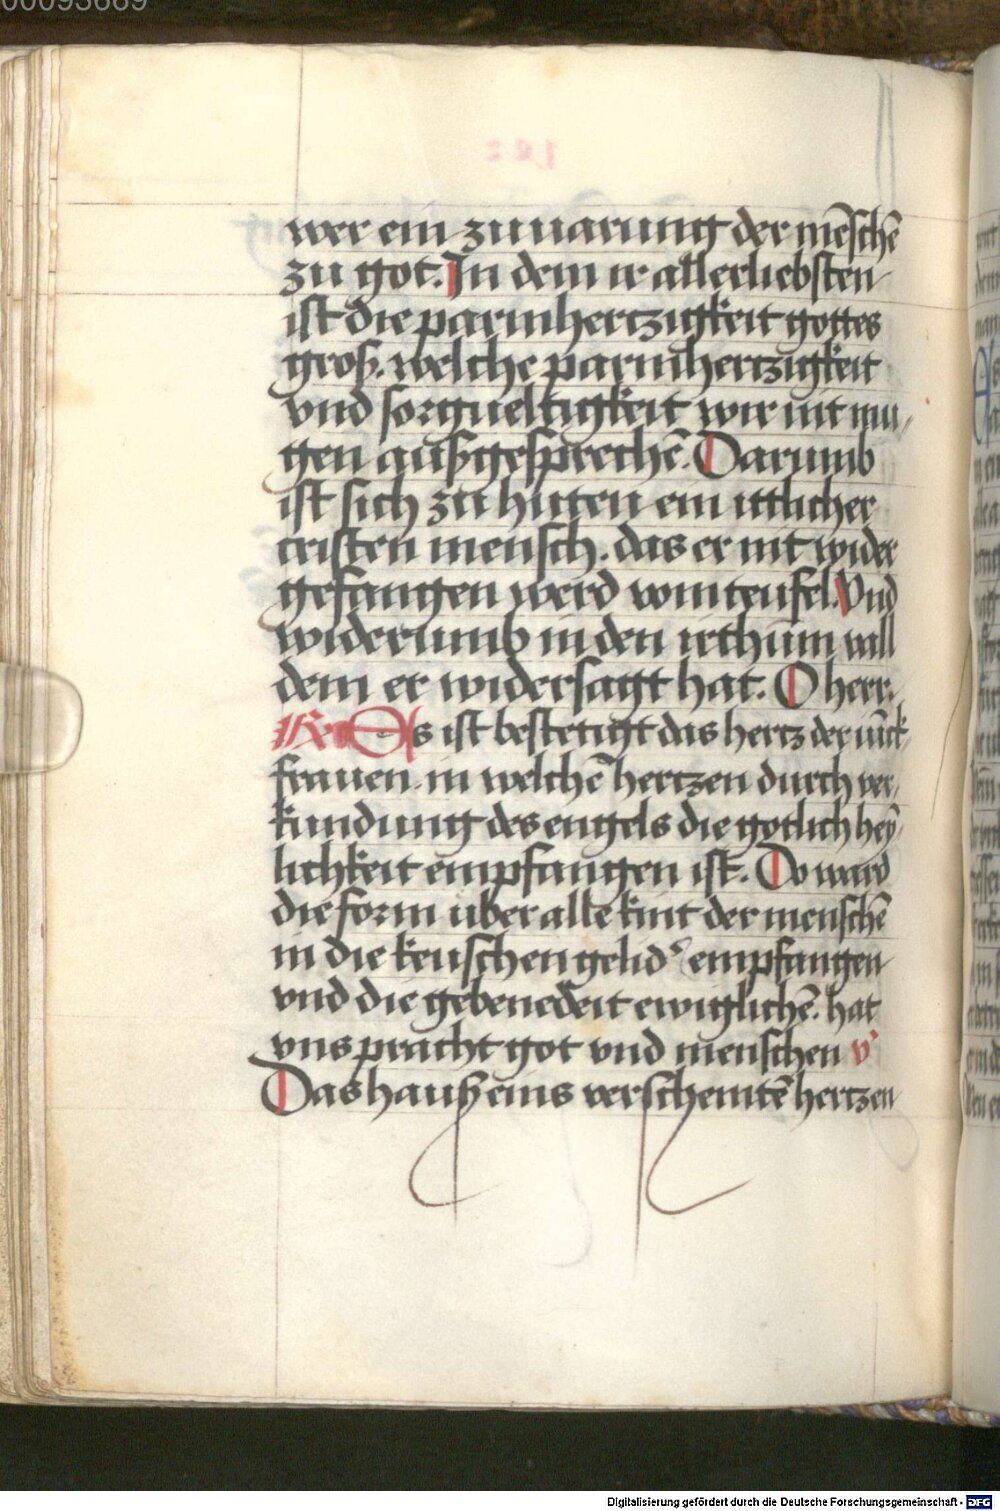 00093669
wer ein zunarung der mēschē
zu got. In dem ir allerliebsten
ist die parmhertzigkeit gottes
groß. welche parmhertzigkeit
vnd sorgueltigkeit wir nit mu,
gen außgesprechē. Darumb
ist sich zu hüten ein itlicher
cristen mensch. das er nit wider
gefangen werd vom teufel. Vnd
widerumb in den irthum vall
dem er widersagt hat. O herr.
Es ist bestetigt das hertz der iūck
frauen. in welchē hertzen durch ver,
kundung des engels die gotlich hey,
lichkeit empfangen ist. Do ward
die form über alle kint der menschē
in die keuschen gelid' empfangen
vnd die gebenedeit ewiglichē. hat
vns pracht got vnd menschen v'
Das hauß eins verschemtē hertzen
Digitalisierung gefördert durch die Deutsche Forschungsgemeinschaft - DFG